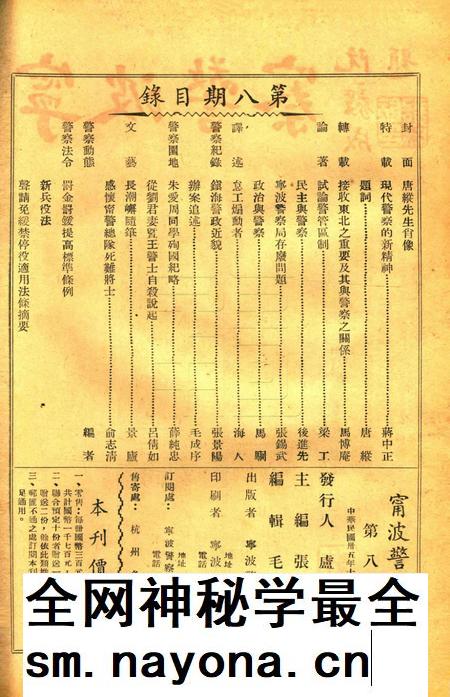 第八期目錄
封面 唐縱先生肖像
特載 現代警察的新精神 蔣中正
題詞 唐縱
轉載 接收東北之重要及其與警察之關係 馬博庵
論著 試論警管區制 梁工
民主與警察 後進先
寧波警察局存廢問題 張錫武
政治與警察 馬
譯述 怠工煽動者 海人
警察紀錄 鎮海警政近貌 張景陽
辦案追述 毛成序
警察園地 朱愛周同學殉國紀略 薛純忠
從劉君素暨王警士自殺說起 呂倩如
文藝 長潮隨筆 景廬
感懷甯警總隊死難將士 俞志清
警察動態 編者
警察法令 罰金罰鍰提高標準條例
新兵役法
聲請免緩禁停役適用法條摘要
甯波警
第八
中華民國卅五年十
發行人 盧
主編 張
編輯 毛
出版者 寧波
地址
印刷者 寧波
電話
訂閱處：寧波警察
地址
電話
售寄處：杭州
本刊價
一、零售：每冊國幣三百五
共計國幣一千七百元
二、聯合預定十份者附送
附送二份，他依此類推
三、郵匯不通之處訂閱本刊
足通用。
全网神秘学最全
sm.nayona.cn